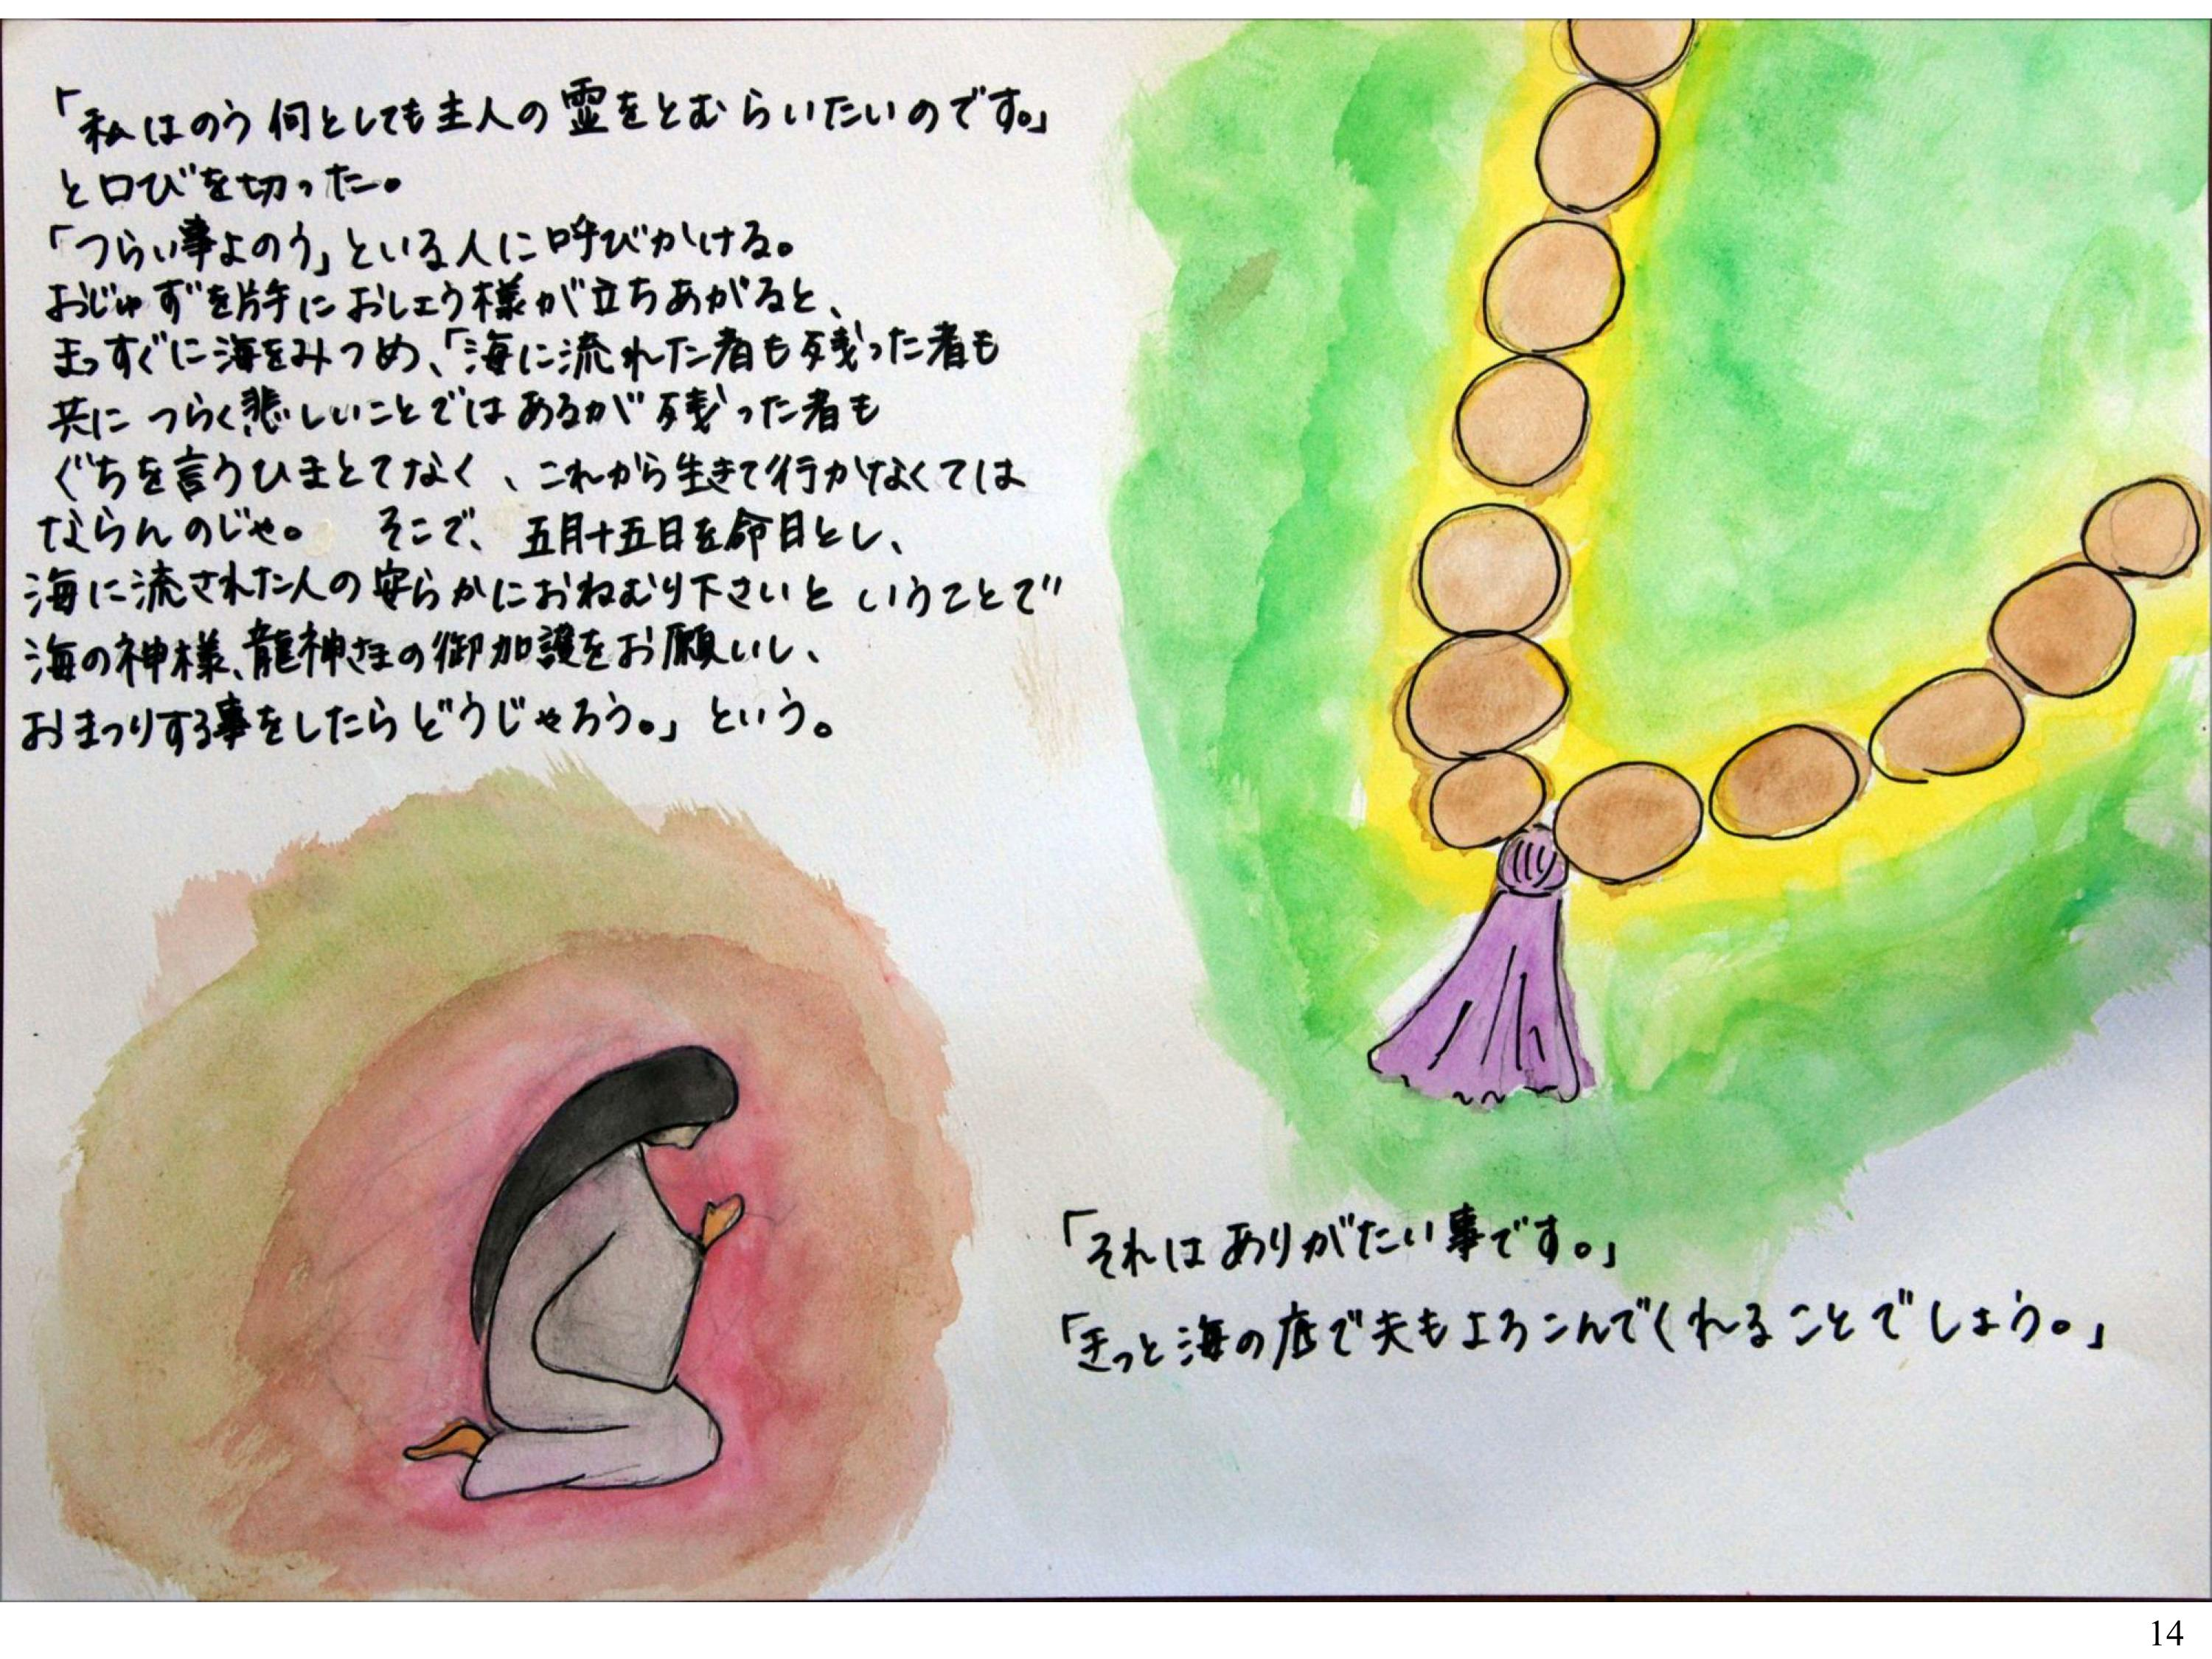 「私はのう何としても主人の霊をとむらいたいのです。」
と口びを切った。
「つらい事よのう」といる人に呼びかける。
おじゅずを片手におしょう様が立ちあがると、
まっすぐに海をみつめ、「海に流れた者も残った者も
共につらく悲しいことではあるが残った者も
ぐちを言うひまとてなく、これから生きて行かなくては
ならんのじゃ。　そこで、五月十五日を命日とし、
海に流された人の安らかにおねむり下さいということで
海の神様、龍神さまの御加護をお願いし、
おまつりする事をしたらどうじゃろう。」という。
「それはありがたい事です。」
「きっと海の底で夫もよろこんでくれることでしょう。」
14